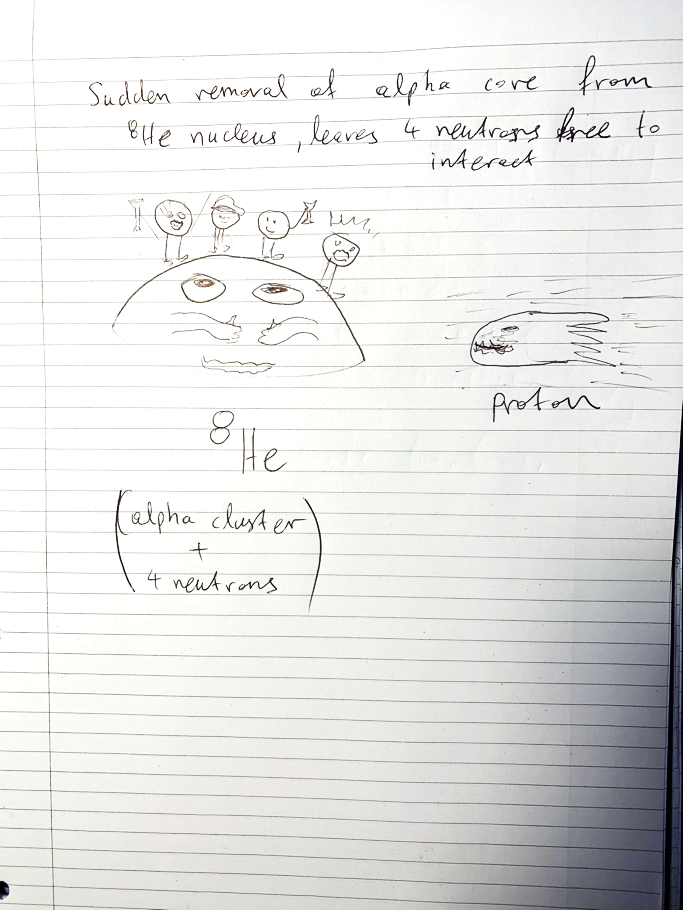 Sudden removal of alpha core from
⁸He nucleus, leaves 4 neutrons free to
interact
proton
⁸He
(alpha cluster
+
4 neutrons)